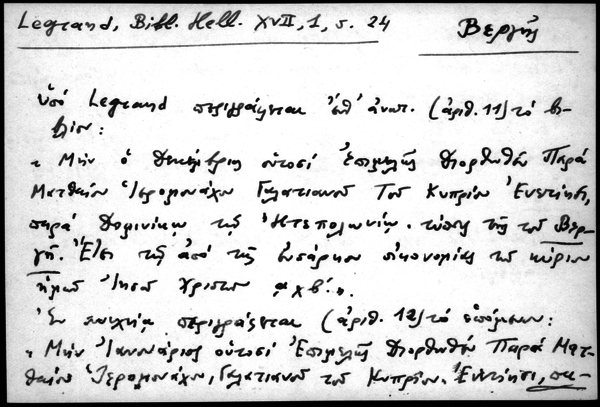 Legrand, Bibl. Hell. XVII, 1, σ. 24
Βεργῆς
ὑπό Legrand περιγράφεται ἐπ' ἀνωτ. (ἀριθ. 11) τό βι-
βλίον:
« Μήν ὁ Δεκέμβριος οὑτοσί Ἐπιμελῆς Διορθωθείς Παρά
Ματθαίου Ἱερομονάχου Γαλατιανοῦ Τοῦ Κυπρίου Ἐνετίησι,
παρά Δομινίκῳ τῆς . τύποις τῆς τοῦ Βερ-
γῆ. Ἔτει τῆς ἀπό τῆς ἐνσάρκου οἰκονομίας τοῦ κυρίου
ἡμῶν Ἰησοῦ Χριστοῦ αχβ´.».
Ἐν συνεχείᾳ περιγράφεται (ἀριθ. 12) τό ἑπόμενον:
« Μήν Ἰαννουάριος οὑτοσί Ἐπιμελῆς Διορθωθείς Παρά Ματ-
θαίου Ἱερομονάχου, Γαλατιανοῦ τοῦ Κυπρίου. Ἐνετίησι, πα-